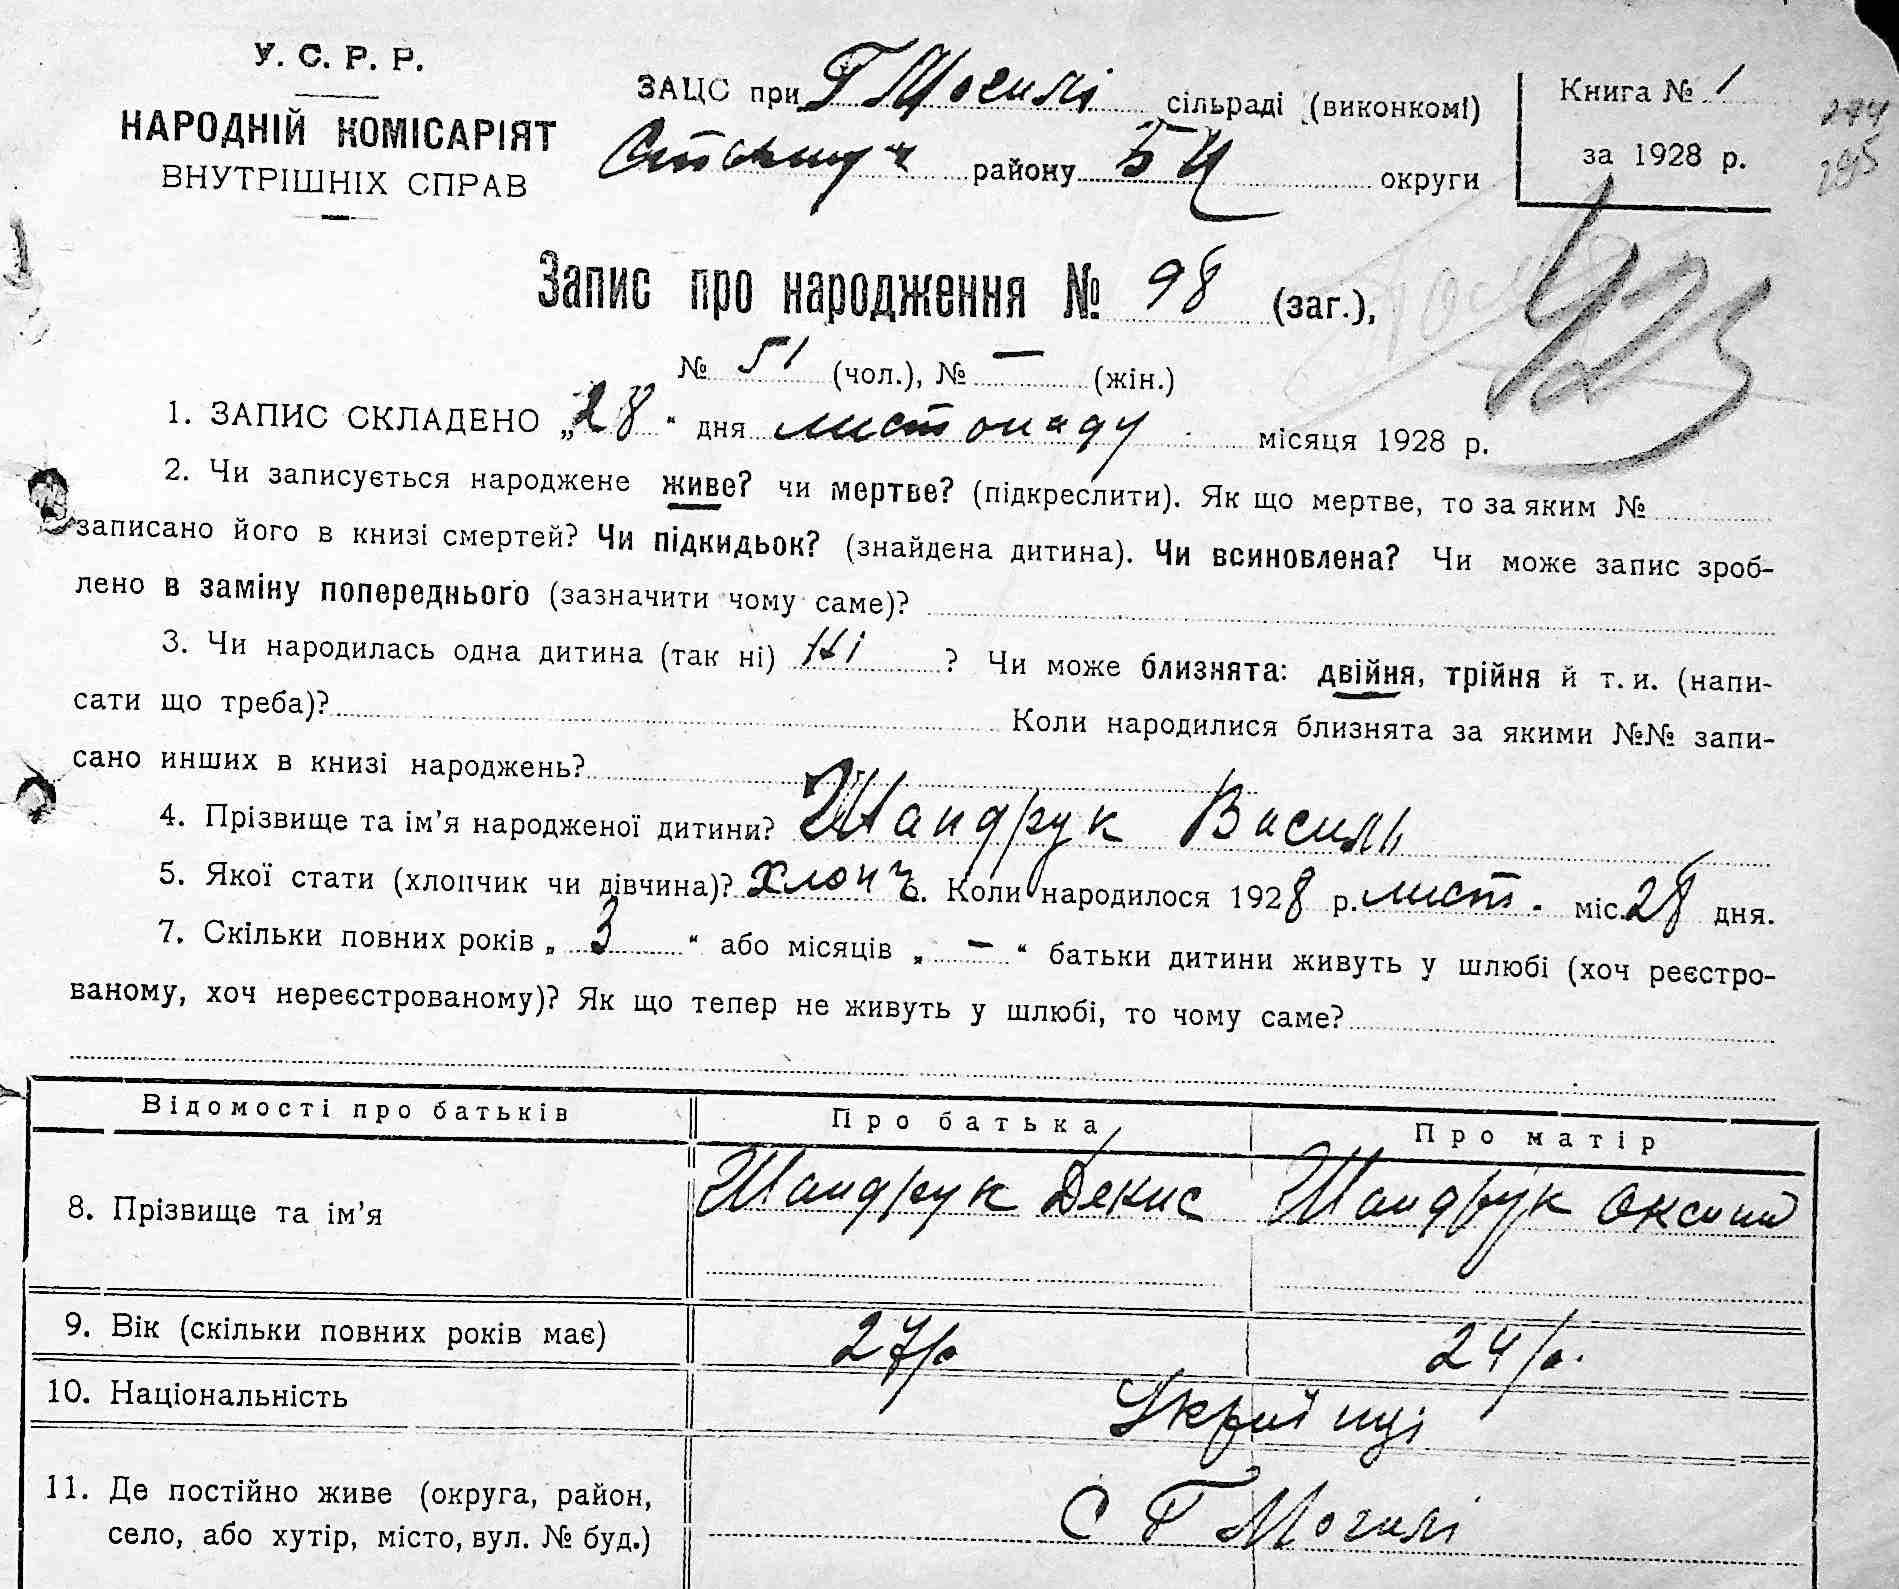 У. С. Р. Р.
НАРОДНІЙ КОМІСАРІЯТ
ВНУТРІШНІХ СПРАВ
ЗАЦС при Г Могилі сільраді (виконкомі)
району БЦ округи
Книга № 1
за 1928 р.
Запис про народження № 98 (заг.),
№ 51 (чол.), № — (жін.)
1. ЗАПИС СКЛАДЕНО „28“ дня листопаду місяця 1928 р.
2. Чи записується народжене живе? чи мертве? (підкреслити). Як що мертве, то за яким №
записано його в книзі смертей? Чи підкидьок? (знайдена дитина). Чи всиновлена? Чи може запис зроб-
лено в заміну попереднього (зазначити чому саме)?
3. Чи народилась одна дитина (так ні) Ні ? Чи може близнята: двійня, трійня й т. и. (напи-
сати що треба)? Коли народилися близнята за якими №№ запи-
сано инших в книзі народжень?
4. Прізвище та ім'я народженої дитини? Шандрук Василь
5. Якої стати (хлопчик чи дівчина)? хлопч. Коли народилося 1928 р. лист. міс. 28 дня.
7. Скільки повних років „3“ або місяців „—“ батьки дитини живуть у шлюбі (хоч реєстро-
ваному, хоч нереєстрованому)? Як що тепер не живуть у шлюбі, то чому саме?
Відомості про батьків Про батька Про матір
8. Прізвище та ім'я Шандрук Денис Шандрук Оксана
9. Вік (скільки повних років має) 27 р. 24 р.
10. Національність Українці
11. Де постійно живе (округа, район,
село, або хутір, місто, вул. № буд.) С Г Могилі